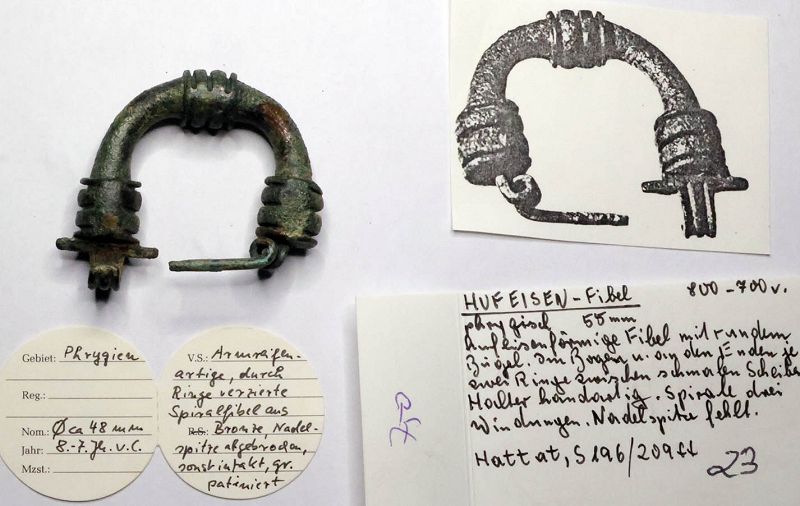 Gebiet: Phrygien
Reg.:
Nom.: Ø ca 48 mm
Jahr: 8.-7. Jh. v. C.
Mzst.:
V.S.: Armreifen-
artige, durch
Ringe verzierte
Spiralfibel aus
R.S.: Bronze, Nadel-
spitze abgebrochen,
sonst intakt, gr.
patiniert
HUFEISEN-Fibel 800-700 v.
phrygisch 55 mm
hufeisenförmige Fibel mit rundem
Bügel. Im Bogen u. an den Enden je
zwei Ringe zwischen schmalen Scheiben
Halter handartig. Spirale drei
Windungen. Nadelspitze fehlt.
Hattat, S 196/209 ff
23
7,50